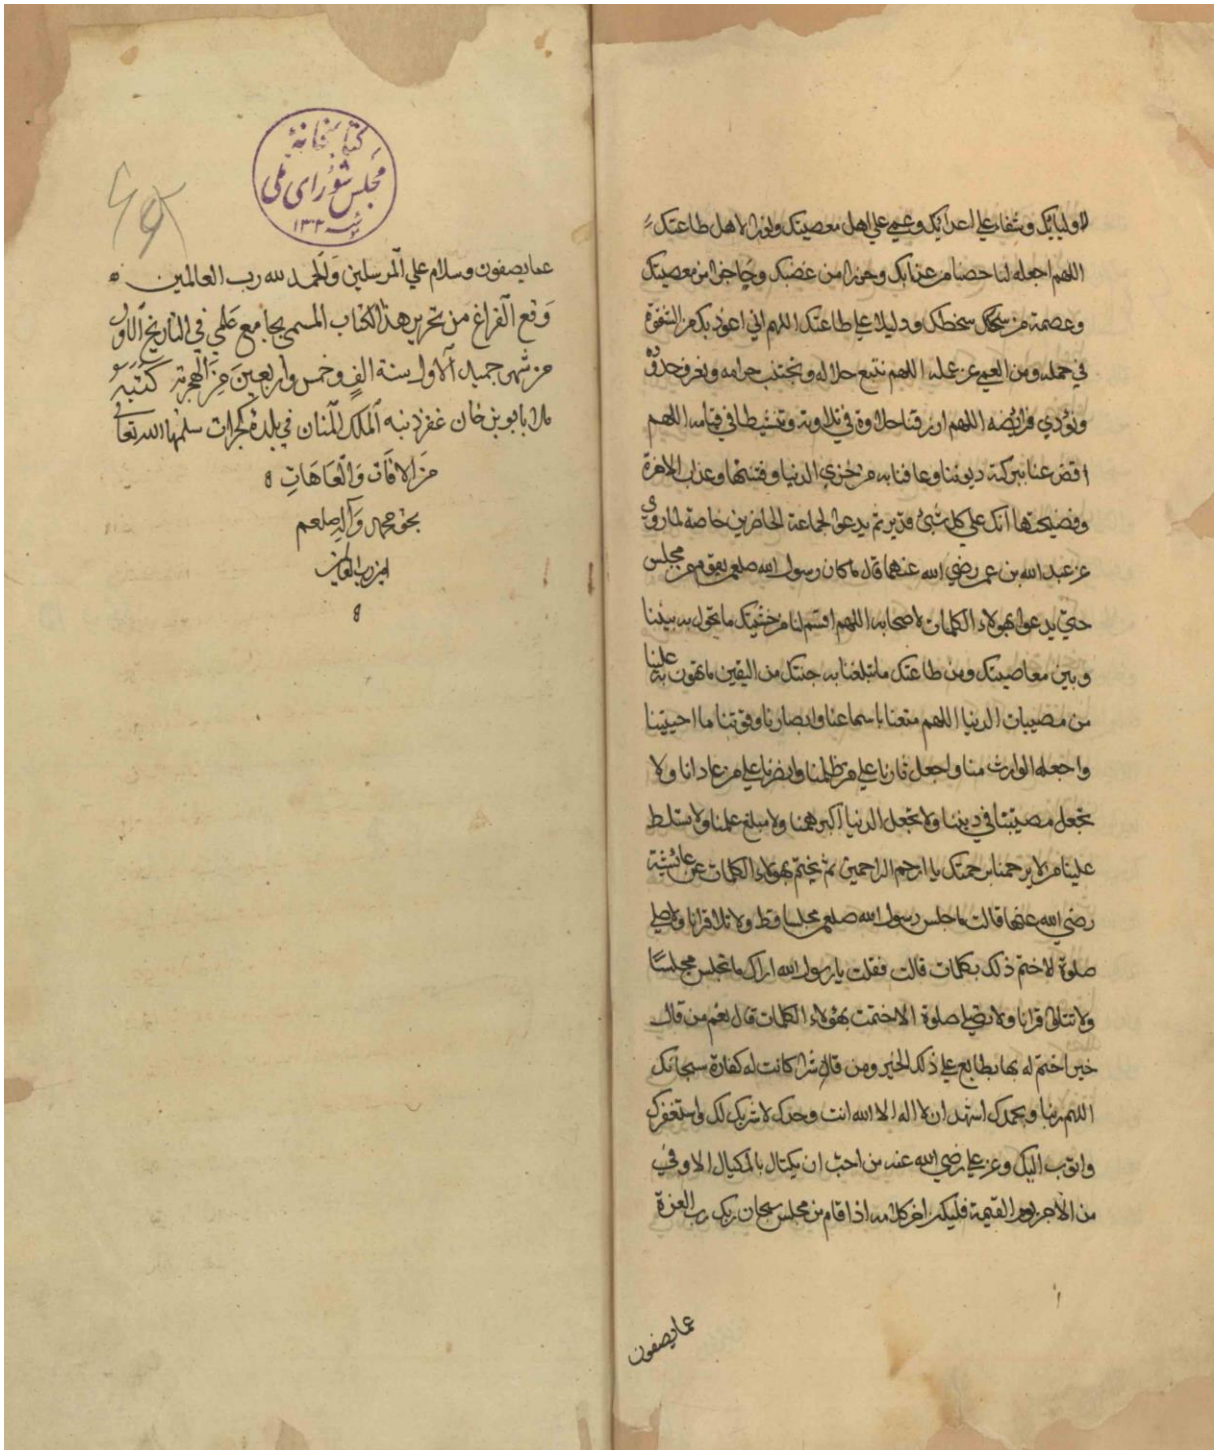 لاوليائك وشفاء علي اعدائك وعمي علي اهل معصيتك ونورا لاهل طاعتك
اللهم اجعله لنا حصنا من عذابك وحرزا من غضبك وحاجزا من معصيتك
وعصمة من سخطك ودليلا علي طاعتك اللهم اني اعوذ بك من الشقوة
في حمله ومن العمي عن عمله اللهم نتبع حلاله ونجتنب حرامه ونعرف حدوده
ونؤدي فرائضه اللهم ارزقنا حلاوة في تلاوته وتنشيطا في قيامه اللهم
اقض عنا ببركته ديوننا وعافنا به من خزي الدنيا وفتنتها وعذاب الاخرة
وفضيحتها انك علي كل شئ قدير ثم يدعو الجماعة الحاضرين خاصة لما روي
عن عبد الله بن عمر رضي الله عنهما قال ما كان رسول الله صلعم يقوم من مجلس
حتي يدعو بهولاء الكلمات لاصحابه اللهم اقسم لنا من خشيتك ما تحول به بيننا
وبين معاصيتك ومن طاعتك ما تبلغنا به جنتك من اليقين ما تهون به علينا
من مصيبات الدنيا اللهم متعنا باسماعنا وابصارنا وقوتنا ما احييتنا
واجعله الوارث منا واجعل ثارنا علي من ظلمنا وانصرنا علي من عادانا ولا
تجعل مصيبتنا في ديننا ولا تجعل الدنيا اكبر همنا ولا مبلغ علمنا ولا تسلط
علينا من لا يرحمنا برحمتك يا ارحم الراحمين ثم يختم بهولاء الكلمات عن عائشة
رضي الله عنها قالت ما جلس رسول الله صلعم مجلسا قط ولا تلا قرانا ولا صلي
صلوة لا ختم ذلك بكلمات قالت فقلت يا رسول الله اراك ما تجلس مجلسا
ولا تتلو قرانا ولا تصلي صلوة الا ختمت بهولاء الكلمات قال نعم من قال
خيرا ختم له بها بطابع علي ذلك الخير ومن قال شرا كانت له كفارة سبحانك
اللهم ربنا وبحمدك اشهد ان لا اله الا الله انت وحدك لا شريك لك واستغفرك
واتوب اليك وعن علي رضي الله عنه من احب ان يكتال بالمكيال الاوفي
من الاجر يوم القيمة فليكن اخر كلامه اذا قام من مجلس سبحان ربك رب العزة
عما يصفون
کتابخانهٔ
مجلس شورای ملی
عما يصفون وسلام علي المرسلين والحمد لله رب العالمين
وقع الفراغ من تحرير هذا الكتاب المسمي بجامع علمي في التاريخ الاول
من شهر جميد الاول سنة الف وخمس واربعين من الهجرة كتبه
ملا بابو بن خان غفر ذنبه الملك المنان في بلدة كجرات سلمها الله تعالي
من الافات والعاهات
بحق محمد وآله صلعم
امين رب العالمين